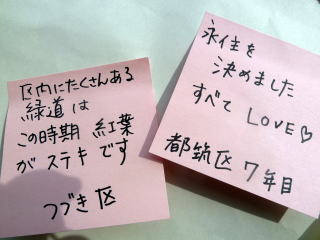 区内にたくさんある
緑道は
この時期 紅葉
がステキです
つづき区
永住を
決めました
すべて LOVE♡
都筑区 7年目